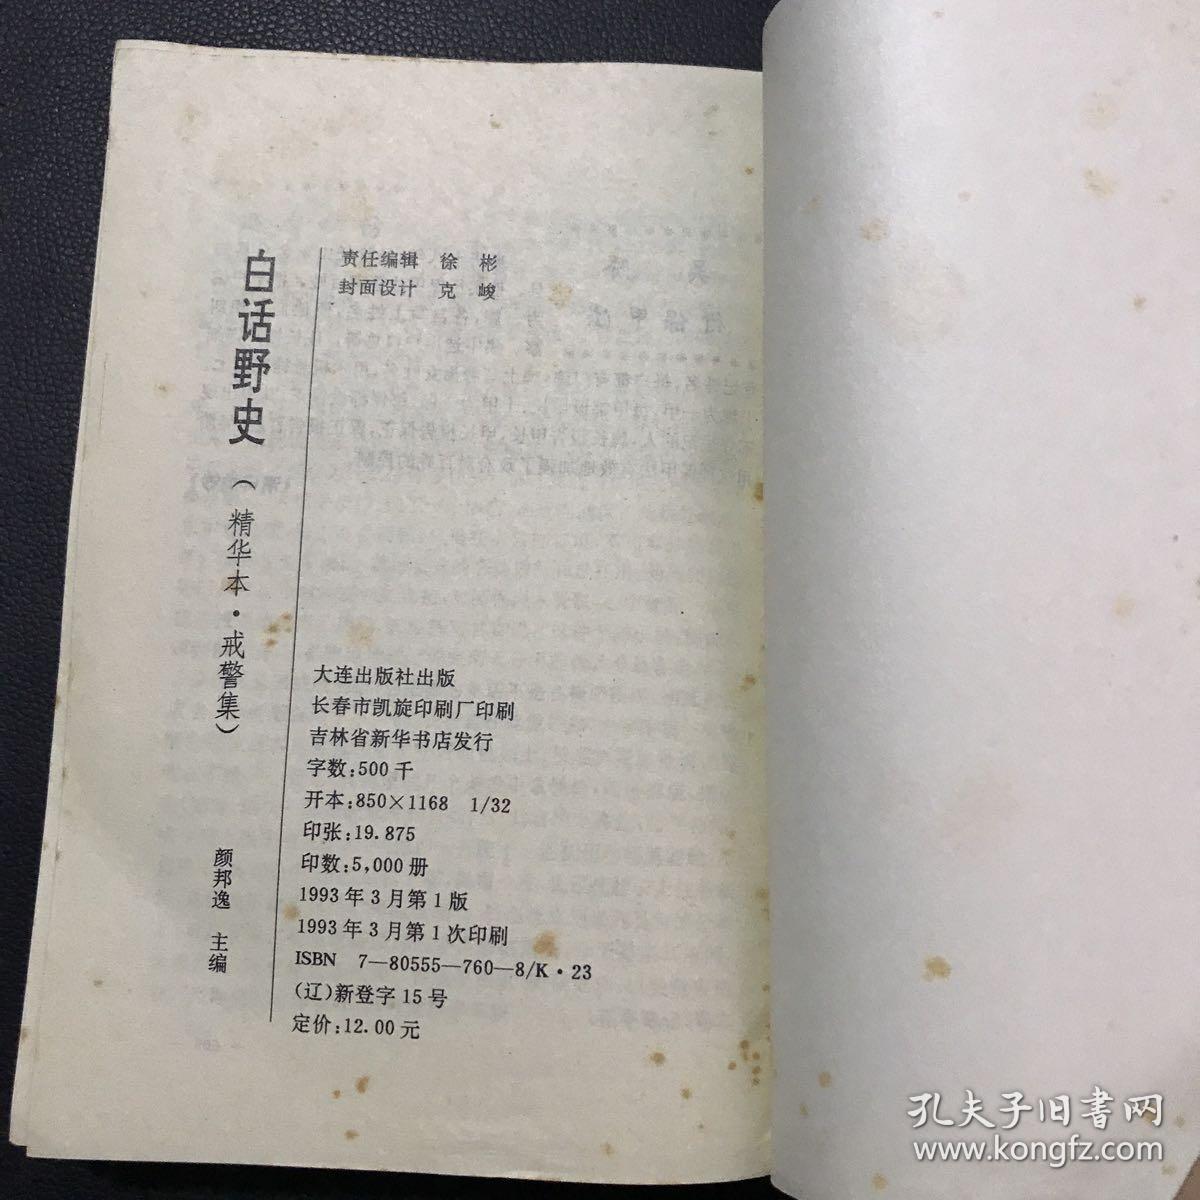 白话野史(精华本·戒警集)
颜邦逸 主编
责任编辑 徐彬
封面设计 克峻
大连出版社出版
长春市凯旋印刷厂印刷
吉林省新华书店发行
字数:500千
开本:850×1168 1/32
印张:19.875
印数:5,000册
1993年3月第1版
1993年3月第1次印刷
ISBN 7—80555—760—8/K·23
(辽)新登字15号
定价:12.00元
孔夫子旧书网
www.kongfz.com